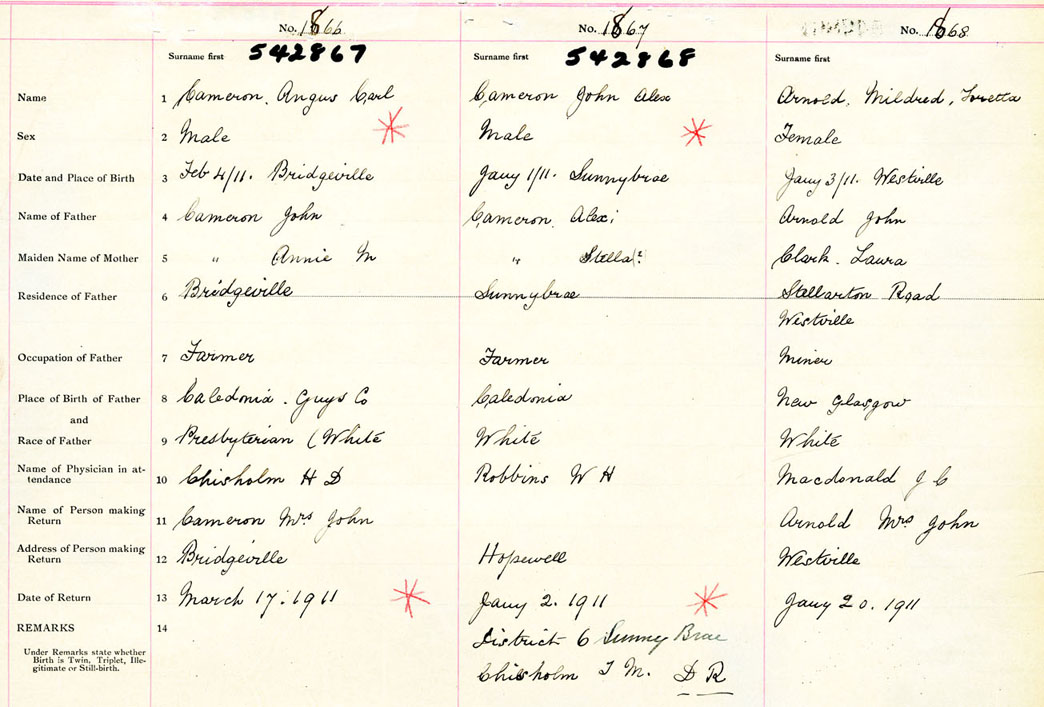 No. 1866 No. 1867 No. 1868
Surname first 542867 Surname first 542868 Surname first
Name 1 Cameron, Angus Carl Cameron John Alex Arnold, Mildred, Loretta
Sex 2 Male Male Female
Date and Place of Birth 3 Feb 4/11. Bridgeville Jany 1/11. Sunnybrae Jany 3/11. Westville
Name of Father 4 Cameron John Cameron, Alex; Arnold John
Maiden Name of Mother 5 " Annie M " Stella? Clark. Laura
Residence of Father 6 Bridgeville Sunnybrae Stellarton Road
Westville
Occupation of Father 7 Farmer Farmer Miner
Place of Birth of Father 8 Caledonia. Guys Co Caledonia New Glasgow
and
Race of Father 9 Presbyterian (White White White
Name of Physician in at-
tendance 10 Chisholm H D Robbins W H Macdonald J C
Name of Person making
Return 11 Cameron Mrs John Arnold Mrs John
Address of Person making
Return 12 Bridgeville Hopewell Westville
Date of Return 13 March 17. 1911 Jany 2. 1911 Jany 20. 1911
REMARKS 14
District 6 Sunny Brae
Under Remarks state whether
Birth is Twin, Triplet, Ille-
gitimate or Still-birth.
Chisholm T M. D R